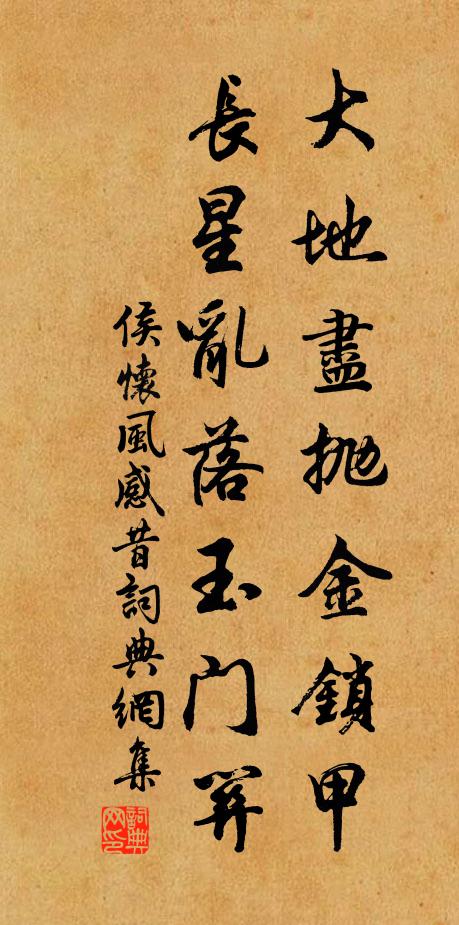 大地盡拋金鎖甲
長星亂落玉門關
侯懷風感昔詞典網集
詞典網印